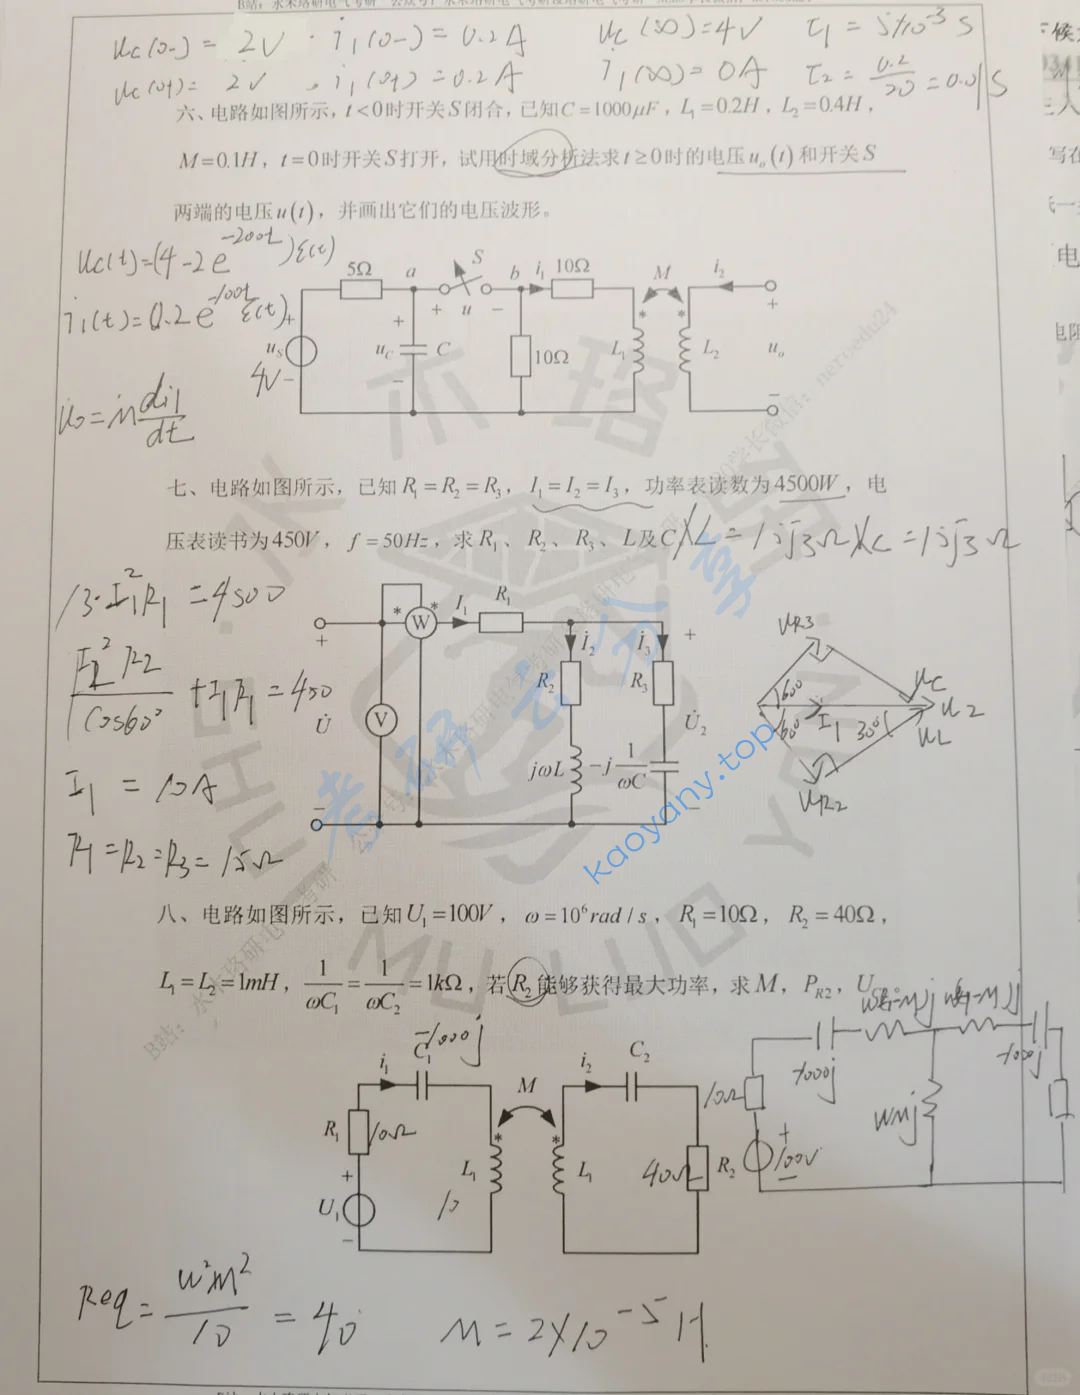 u_C(0-) = 2V · i_1(0-) = 0.2A u_C(∞) = 4V τ_1 = 5×10^-3 S
u_C(0+) = 2V , i_1(0+) = 0.2A i_1(∞) = 0A τ_2 = 0.2/20 = 0.01S
六、电路如图所示，t<0时开关S闭合，已知C=1000μF，L₁=0.2H，L₂=0.4H，
M=0.1H，t=0时开关S打开，试用时域分析法求t≥0时的电压u_o(t)和开关S
两端的电压u(t)，并画出它们的电压波形。
u_C(t)=(4-2e^-200t)ε(t)
i_1(t)=0.2e^-100t ε(t)
u_o = M di_1/dt
5Ω a S b i₁ 10Ω M i₂
+ u − * *
+ u_S − 4V + u_C − C 10Ω L₁ L₂ + u_o −
七、电路如图所示，已知R₁=R₂=R₃，I₁=I₂=I₃，功率表读数为4500W，电
压表读书为450V，f=50Hz，求R₁、R₂、R₃、L及C
X_L=15√3Ω X_C=15√3Ω
13·I_1^2 R_1 = 4500
I_2^2 R_2/cos60° + I_1R_1 = 450
I_1 = 10A
R_1=R_2=R_3=15Ω
* W * İ₁ R₁
+ V U̇ −
İ₂ İ₃ +
R₂ R₃ U̇₂
jωL −j 1/ωC −
U_R3 60° U_C U_2 60° I_1 30° U_L U_R2
八、电路如图所示，已知U₁=100V，ω=10⁶rad/s，R₁=10Ω，R₂=40Ω，
L₁=L₂=1mH，1/ωC₁=1/ωC₂=1kΩ，若R₂能够获得最大功率，求M，P_R2，
-1000j
i₁ C₁ M i₂ C₂
R₁ 10Ω * *
+ L₁ L₁ 40Ω R₂
U₁ −
10Ω -1000j ωMj -1000j
+ 100V −
Req = ω²M²/10 = 40 M = 2×10^-5 H
考研云分享
kaoyany.top
水木珞研
SHUI MU LUO YAN